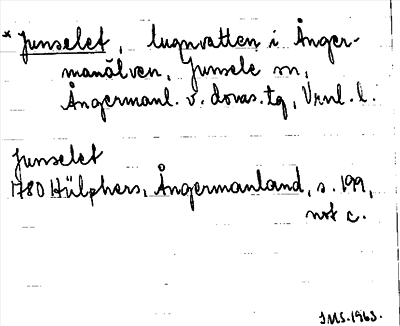 * Junselet, lugnvatten i Ånger-
manälven, Junsele sn,
Ångermanl. v. doms.tg, Vrnl. l.
Junselet
1780 Hülphers, Ångermanland, s. 199,
not c.
IMS. 1963.